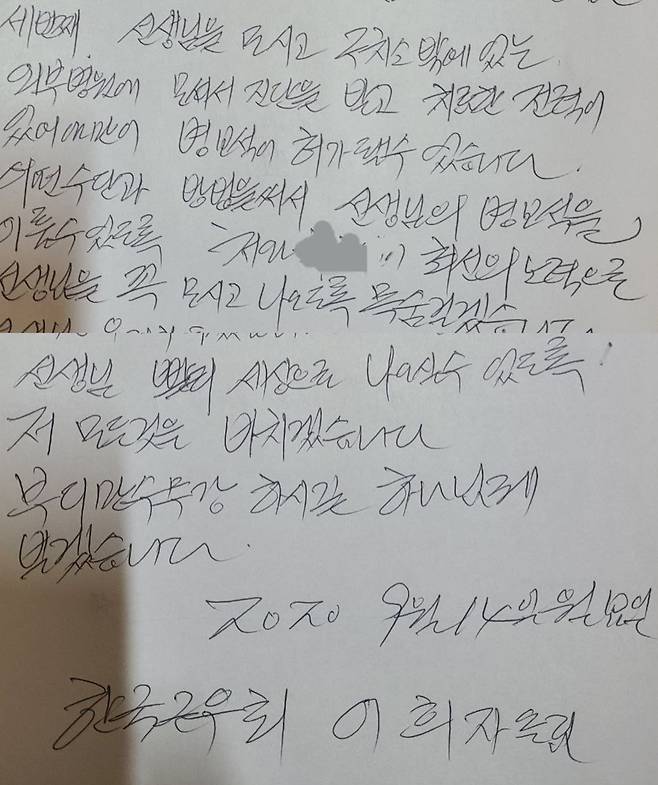 세번째. 선생님을 모시고 구치소 밖에 있는
외부병원에 모셔서 진단을 받고 치료한 전력이
있어야만이 병보석이 허가 될수 있습니다.
어떤수단과 방법을써서 선생님의 병보석을
이룰수있도록 저와 최선의 노력으로
선생님을 꼭 모시고 나오도록 목숨걸겠습니다.
선생님 빨리 세상으로 나이실수 있도록!
저 모든것을 바치겠습니다
부디만수무강 하시길 하나님께
빌겠습니다.
2020 9월14일 월요일
한국근우회 이희자올림